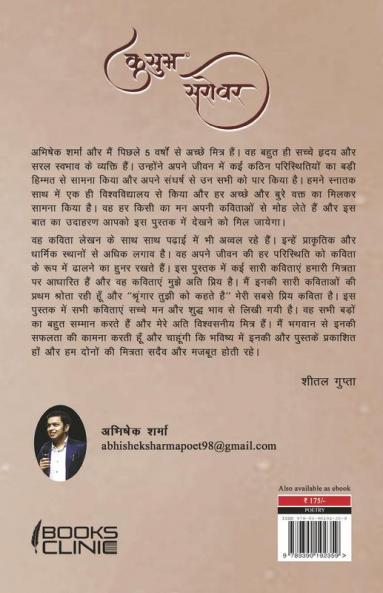 कुसुम सरोवर
अभिषेक शर्मा और मैं पिछले 5 वर्षों से अच्छे मित्र हैं। वह बहुत ही सच्चे हृदय और
सरल स्वभाव के व्यक्ति हैं। उन्होंने अपने जीवन में कई कठिन परिस्थितियों का बड़ी
हिम्मत से सामना किया और अपने संघर्ष से उन सभी को पार किया है। हमने स्नातक
साथ में एक ही विश्वविद्यालय से किया और हर अच्छे और बुरे वक्त का मिलकर
सामना किया है। वह हर किसी का मन अपनी कविताओं से मोह लेते हैं और इस
बात का उदाहरण आपको इस पुस्तक में देखने को मिल जायेगा।
वह कविता लेखन के साथ साथ पढ़ाई में भी अव्वल रहे हैं। इन्हें प्राकृतिक और
धार्मिक स्थानों से अधिक लगाव है। वह अपने जीवन की हर परिस्थिति को कविता
के रूप में ढालने का हुनर रखते हैं। इस पुस्तक में कई सारी कविताएं हमारी मित्रता
पर आधारित हैं और वह कविताएं मुझे अति प्रिय है। मैं इनकी सारी कविताओं की
प्रथम श्रोता रही हूँ और “श्रृंगार तुझी को कहते है” मेरी सबसे प्रिय कविता है। इस
पुस्तक में सभी कविताएं सच्चे मन और शुद्ध भाव से लिखी गयी है। वह सभी बड़ों
का बहुत सम्मान करते हैं और मेरे अति विश्वसनीय मित्र हैं। मैं भगवान से इनकी
सफलता की कामना करती हूँ और चाहूंगी कि भविष्य में इनकी और पुस्तकें प्रकाशित
हों और हम दोनों की मित्रता सदैव और मजबूत होती रहे।
शीतल गुप्ता
अभिषेक शर्मा
abhisheksharmapoet98@gmail.com
Also available as ebook
₹ 175/-
POETRY
9 789390 192359 >
BOOKS
CLINIC